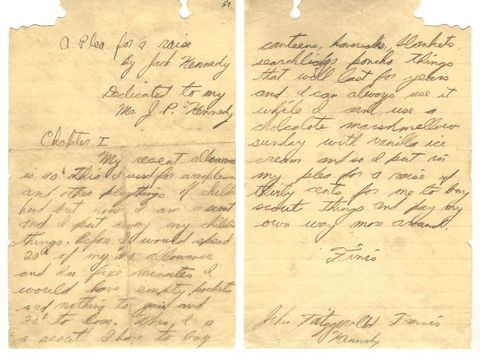 A Plea for a raise
by Jack Kennedy
Dedicated to my
Mr. J. P. Kennedy
Chapter I
My recent allowance
is 40¢ This I used for areoplanes
and other playthings of childhood
but now I am a scout
and I put away my childish
things. Before I would spend
20¢ of my ¢ allowance
and in five minutes I
would have empty pockets
and nothing to gain and
20¢ to lose. When I a
a scout I have to buy
canteens, haversacks, blankets
searchlidgs poncho things
that will last for years
and I can always use it
while I cant use a
chocolate marshmellow
sunday with vanilla ice
cream and so I put in
my plea for a raise of
thirty cents for me to buy
scout things and pay my
own way more around.
Finis
John Fitzgerald Francis
Kennedy